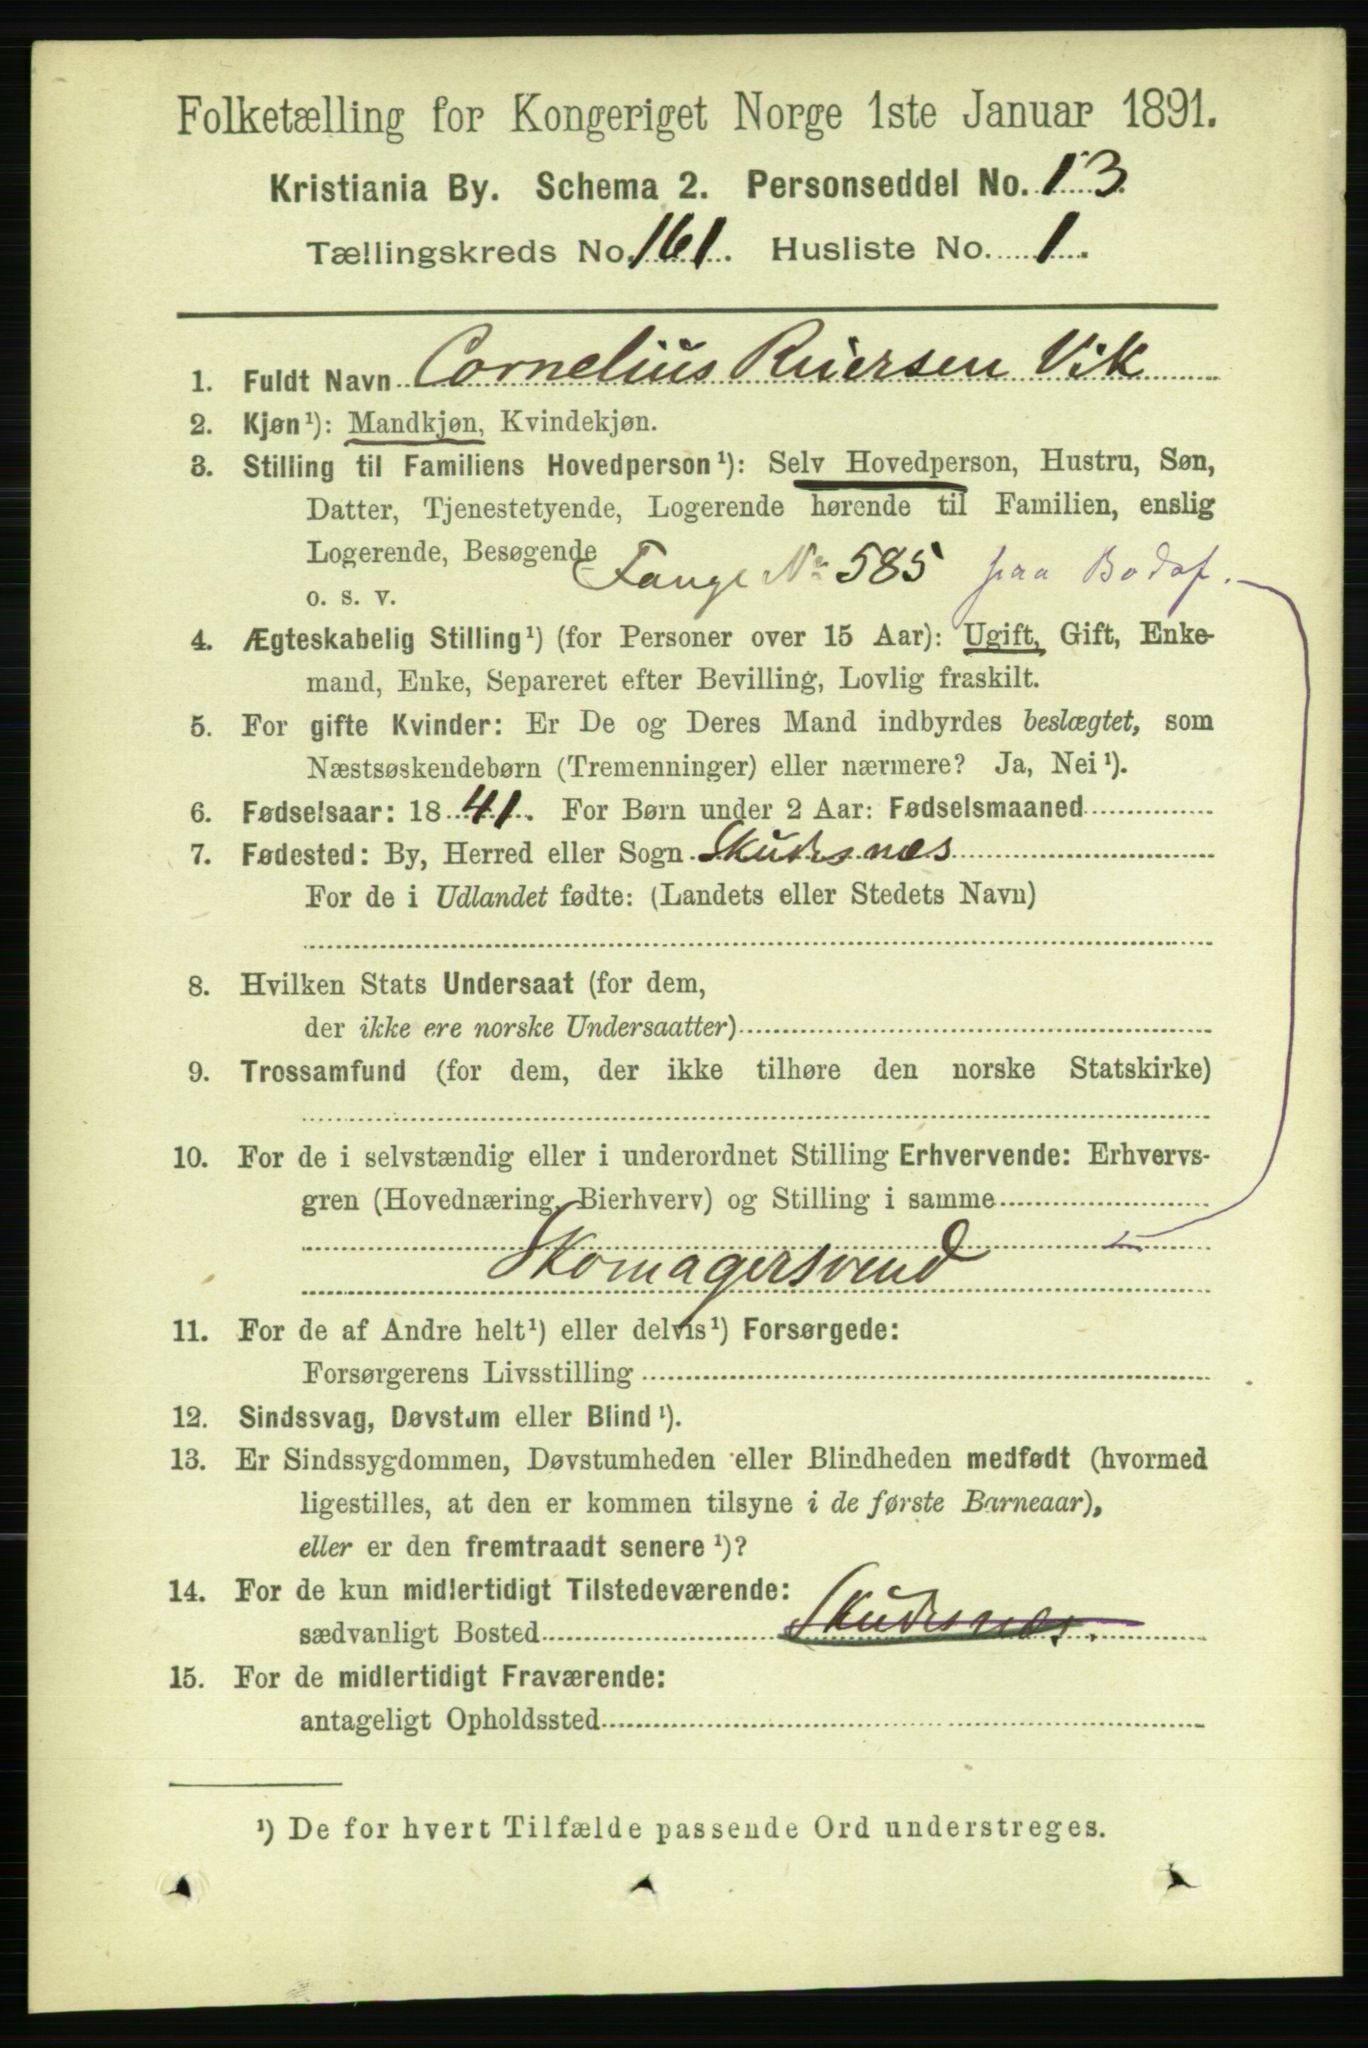 Folketælling for Kongeriget Norge 1ste Januar 1891.
Kristiania By. Schema 2. Personseddel No. 13.
Tællingskreds No. 161. Husliste No. 1.
1. Fuldt Navn Cornelius Reiersen Vik
2. Kjøn¹): Mandkjøn, Kvindekjøn.
3. Stilling til Familiens Hovedperson¹): Selv Hovedperson, Hustru, Søn,
Datter, Tjenestetyende, Logerende hørende til Familien, enslig
Logerende, Besøgende
o. s. v. Fange No 585 paa Bodsf.
4. Ægteskabelig Stilling¹) (for Personer over 15 Aar): Ugift, Gift, Enke-
mand, Enke, Separeret efter Bevilling, Lovlig fraskilt.
5. For gifte Kvinder: Er De og Deres Mand indbyrdes beslægtet, som
Næstsøskendebørn (Tremenninger) eller nærmere? Ja, Nei¹).
6. Fødselsaar: 1841. For Børn under 2 Aar: Fødselsmaaned
7. Fødested: By, Herred eller Sogn Skudesnæs
For de i Udlandet fødte: (Landets eller Stedets Navn)
8. Hvilken Stats Undersaat (for dem,
der ikke ere norske Undersaatter)
9. Trossamfund (for dem, der ikke tilhøre den norske Statskirke)
10. For de i selvstændig eller i underordnet Stilling Erhvervende: Erhvervs-
gren (Hovednæring, Bierhverv) og Stilling i samme
Skomagersvend
11. For de af Andre helt¹) eller delvis¹) Forsørgede:
Forsørgerens Livsstilling
12. Sindssvag, Døvstum eller Blind¹).
13. Er Sindssygdommen, Døvstumheden eller Blindheden medfødt (hvormed
ligestilles, at den er kommen tilsyne i de første Barneaar),
eller er den fremtraadt senere¹)?
14. For de kun midlertidigt Tilstedeværende:
sædvanligt Bosted Skudesnæs.
15. For de midlertidigt Fraværende:
antageligt Opholdssted
¹) De for hvert Tilfælde passende Ord understreges.